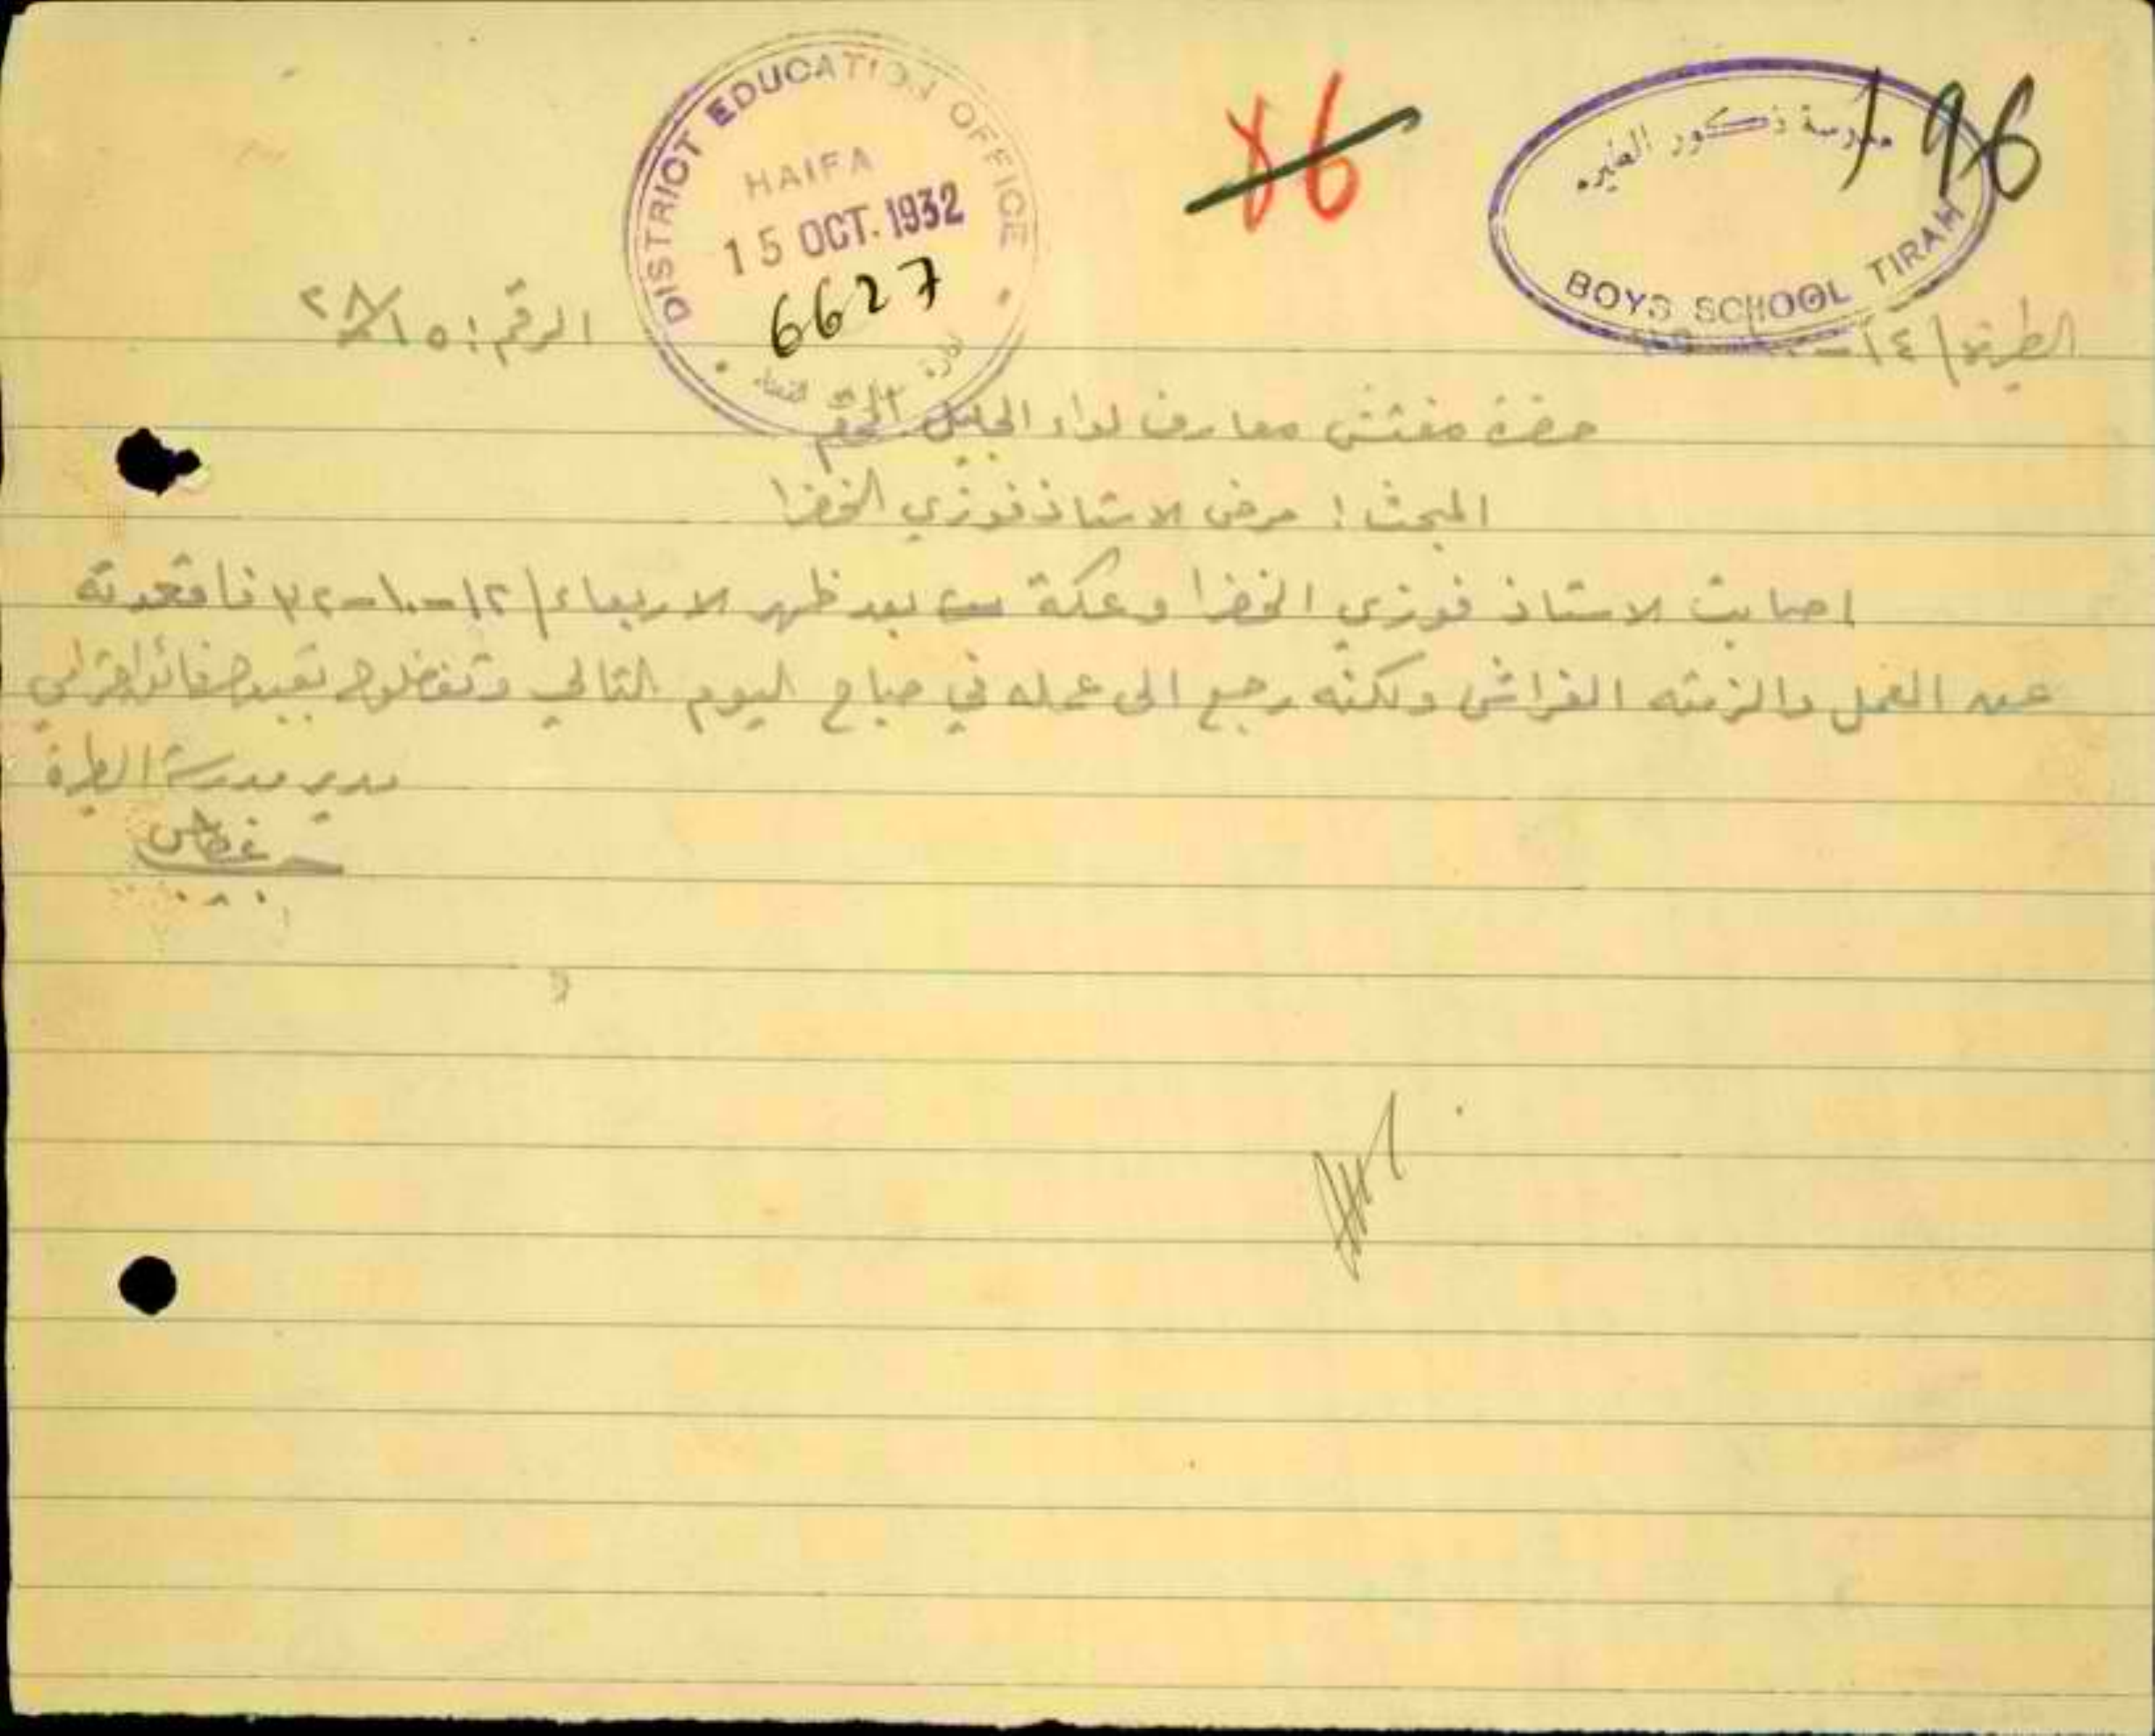 DISTRICT EDUCATION OFFICE
HAIFA
15 OCT. 1932
6627
86
196
مدرسة ذكور الطيره
BOYS SCHOOL TIRAH
الطيرة / ١٤ -
الرقم : ٢٨/١٥
حضرة مفتش معارف لواء الجليل المحترم
المبحث : مرض الاستاذ فوزي الخضرا
اصابت الاستاذ فوزي الخضرا وعكة بعد ظهر الاربعاء / ١٢-١٠-٣٢ فاقعدته
عن العمل والزمته الفراش ولكنه رجع الى عمله في صباح اليوم التالي وتفضلوا بقبول فائق احترامي
مدير مدرسة الطيرة